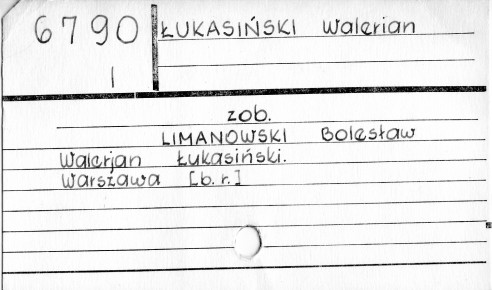 6790 ŁUKASIŃSKI Walerian
I
zob.
LIMANOWSKI Bolesław
Walerjan Łukasiński.
Warszawa [b.r.]